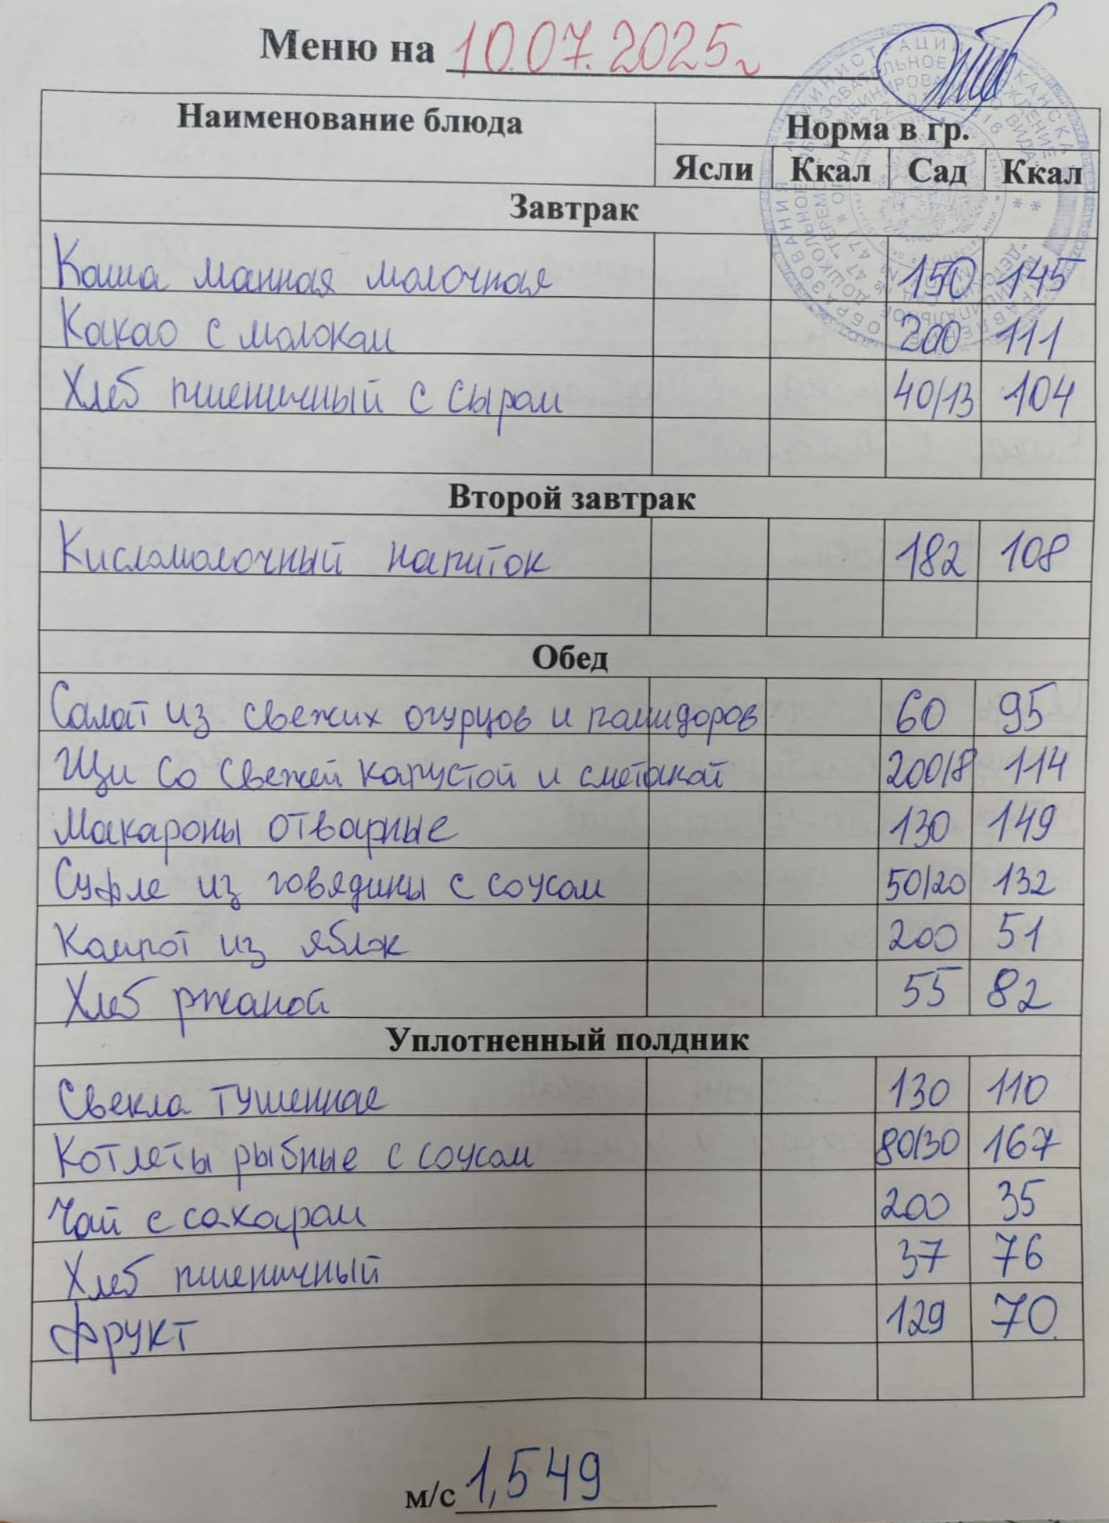 Меню на 10.07.2025г
Наименование блюда Норма в гр.
Ясли Ккал Сад Ккал
Завтрак
Каша манная молочная 150 145
Какао с молоком 200 111
Хлеб пшеничный с сыром 40/13 104
Второй завтрак
Кисломолочный напиток 182 108
Обед
Салат из свежих огурцов и помидоров 60 95
Щи со свежей капустой и сметаной 200/8 114
Макароны отварные 130 149
Суфле из говядины с соусом 50/20 132
Компот из яблок 200 51
Хлеб ржаной 55 82
Уплотненный полдник
Свекла тушенная 130 110
Котлеты рыбные с соусом 80/30 167
Чай с сахаром 200 35
Хлеб пшеничный 37 76
Фрукт 129 70
м/с 1,549